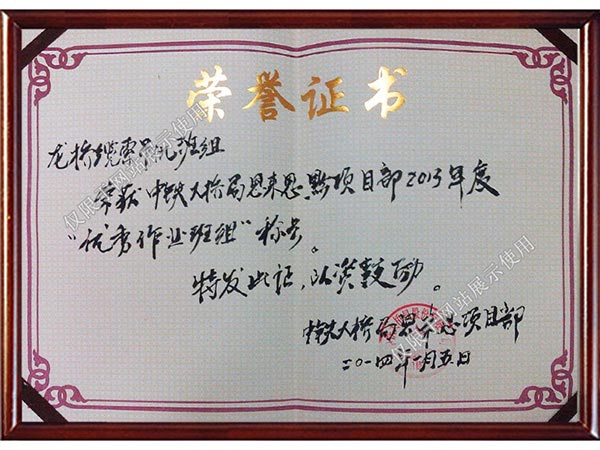 荣誉证书
龙桥缆索吊机班组
荣获中铁大桥局恩来恩黔项目部2013年度
“优秀作业班组”称号。
特发此证，以资鼓励。
中铁大桥局恩来恩项目部
二〇一四年一月五日
仅限于网站展示使用
仅限于网站展示使用